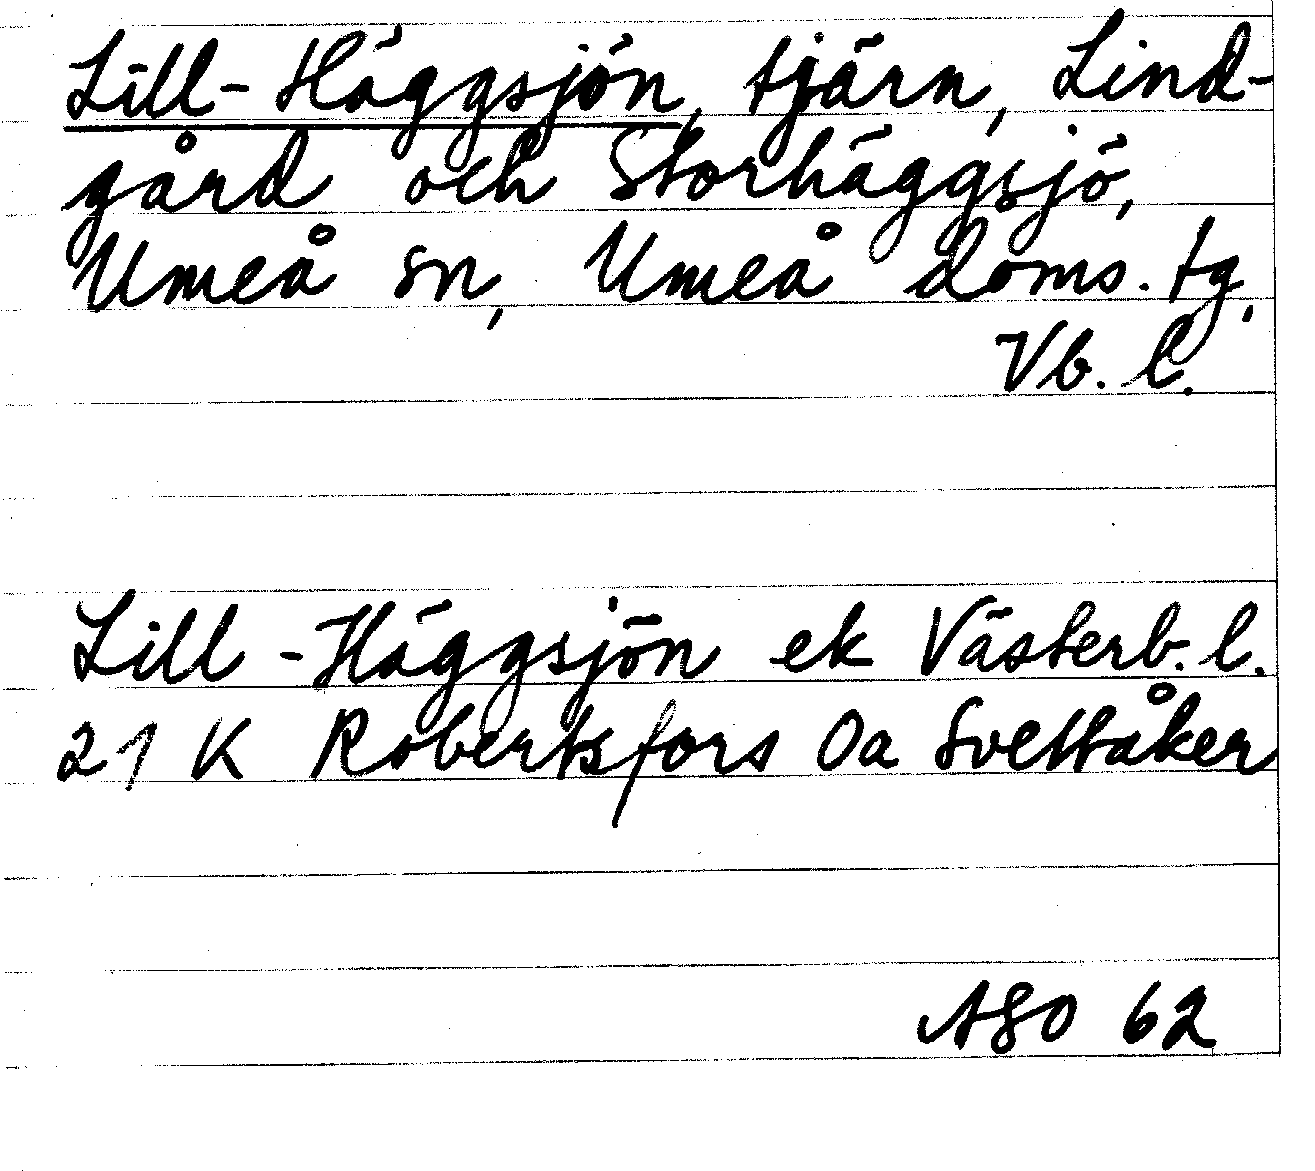 Lill-Häggsjön, tjärn, Lind-
gård och Storhäggsjö,
Umeå sn, Umeå doms. tg,
Vb. l.
Lill-Häggsjön ek Västerb. l.
21 K Robertsfors Oa Svettåker
ASO 62